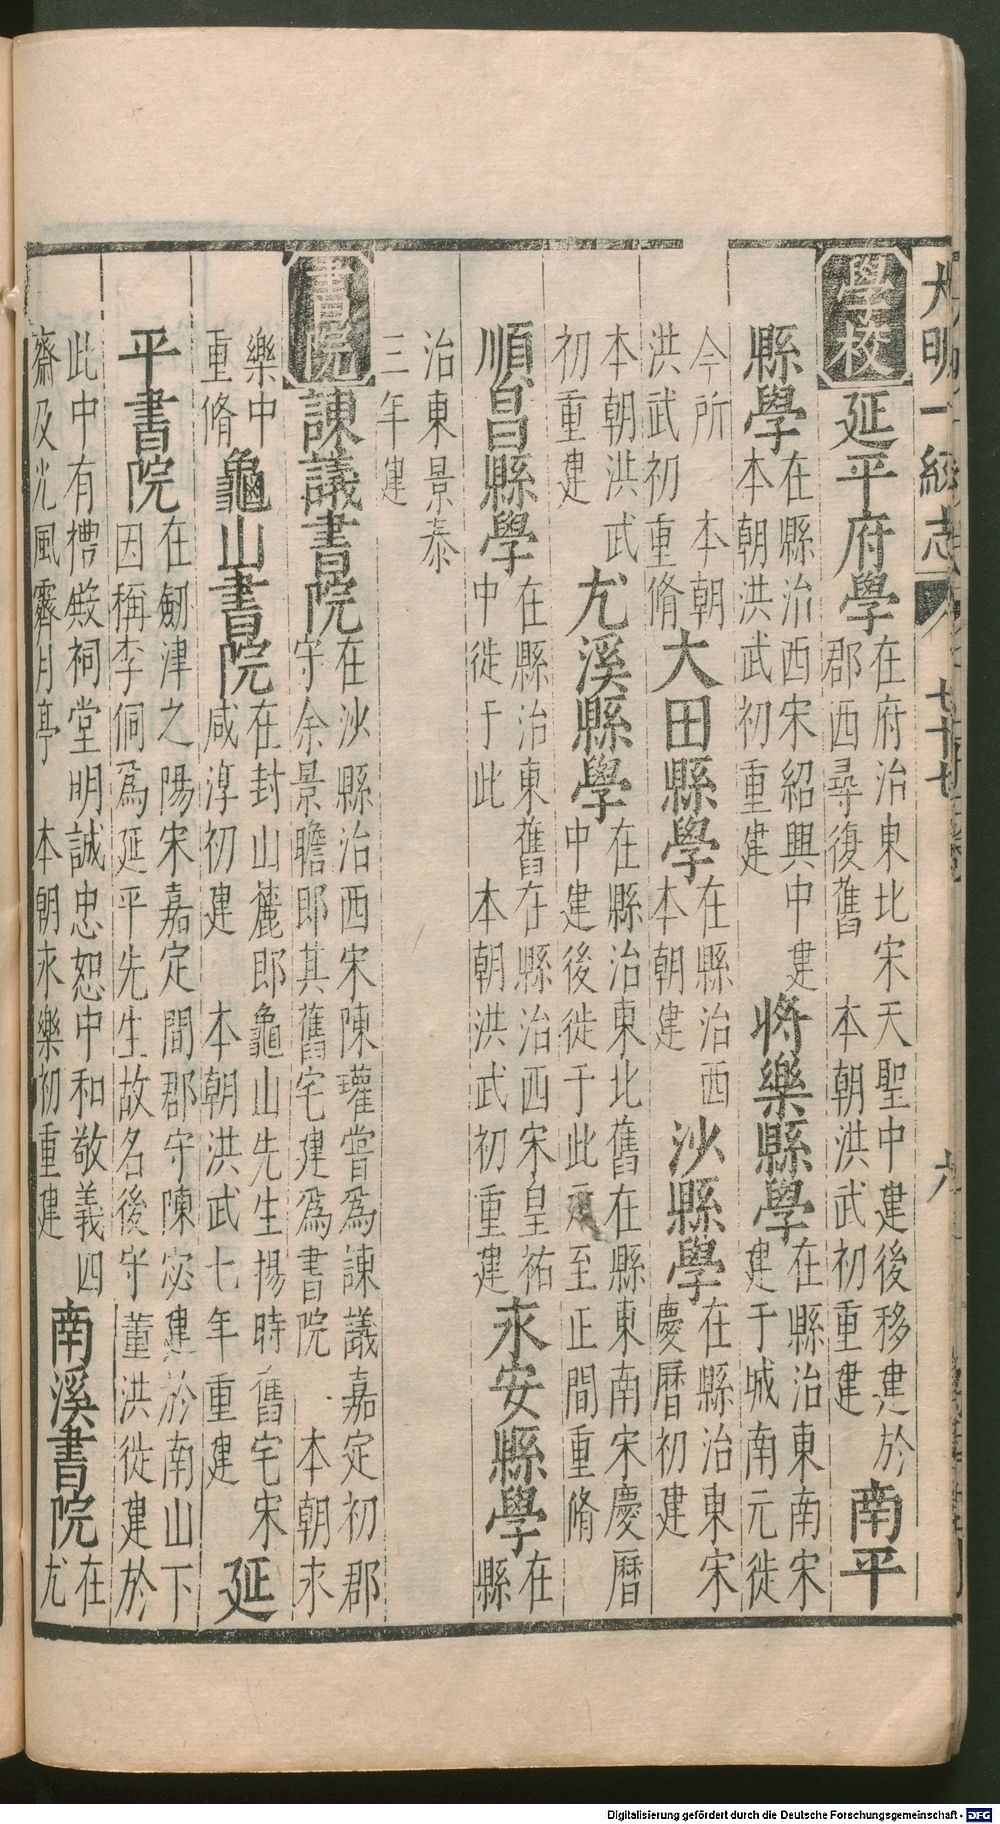 大明一統志 卷七十七 六
學校 延平府學 在府治東北宋天聖中建後移建於郡西尋復舊 本朝洪武初重建 南平
縣學 在縣治西宋紹興中建 本朝洪武初重建 將樂縣學 在縣治東南宋建于城南元徙
今所 本朝洪武初重脩 大田縣學 在縣治西 本朝建 沙縣學 在縣治東宋慶曆初建
本朝洪武初重建 尤溪縣學 在縣治東北舊在縣東南宋慶曆中建後徙于此 至正間重脩
順昌縣學 在縣治東舊在縣治西宋皇祐中徙于此 本朝洪武初重建 永安縣學 在縣
治東景泰三年建
書院 諫議書院 在沙縣治西宋陳瓘嘗為諫議嘉定初郡守余景瞻即其舊宅建為書院 本朝永
樂中重脩 龜山書院 在封山麓即龜山先生揚時舊宅宋咸淳初建 本朝洪武七年重建 延
平書院 在劒津之陽宋嘉定間郡守陳宓建於南山下因稱李侗為延平先生故名後守董洪徙建於
此中有禮殿祠堂明誠忠恕中和敬義四齋及光風霽月亭 本朝永樂初重建 南溪書院 在尤
Digitalisierung gefördert durch die Deutsche Forschungsgemeinschaft - DFG